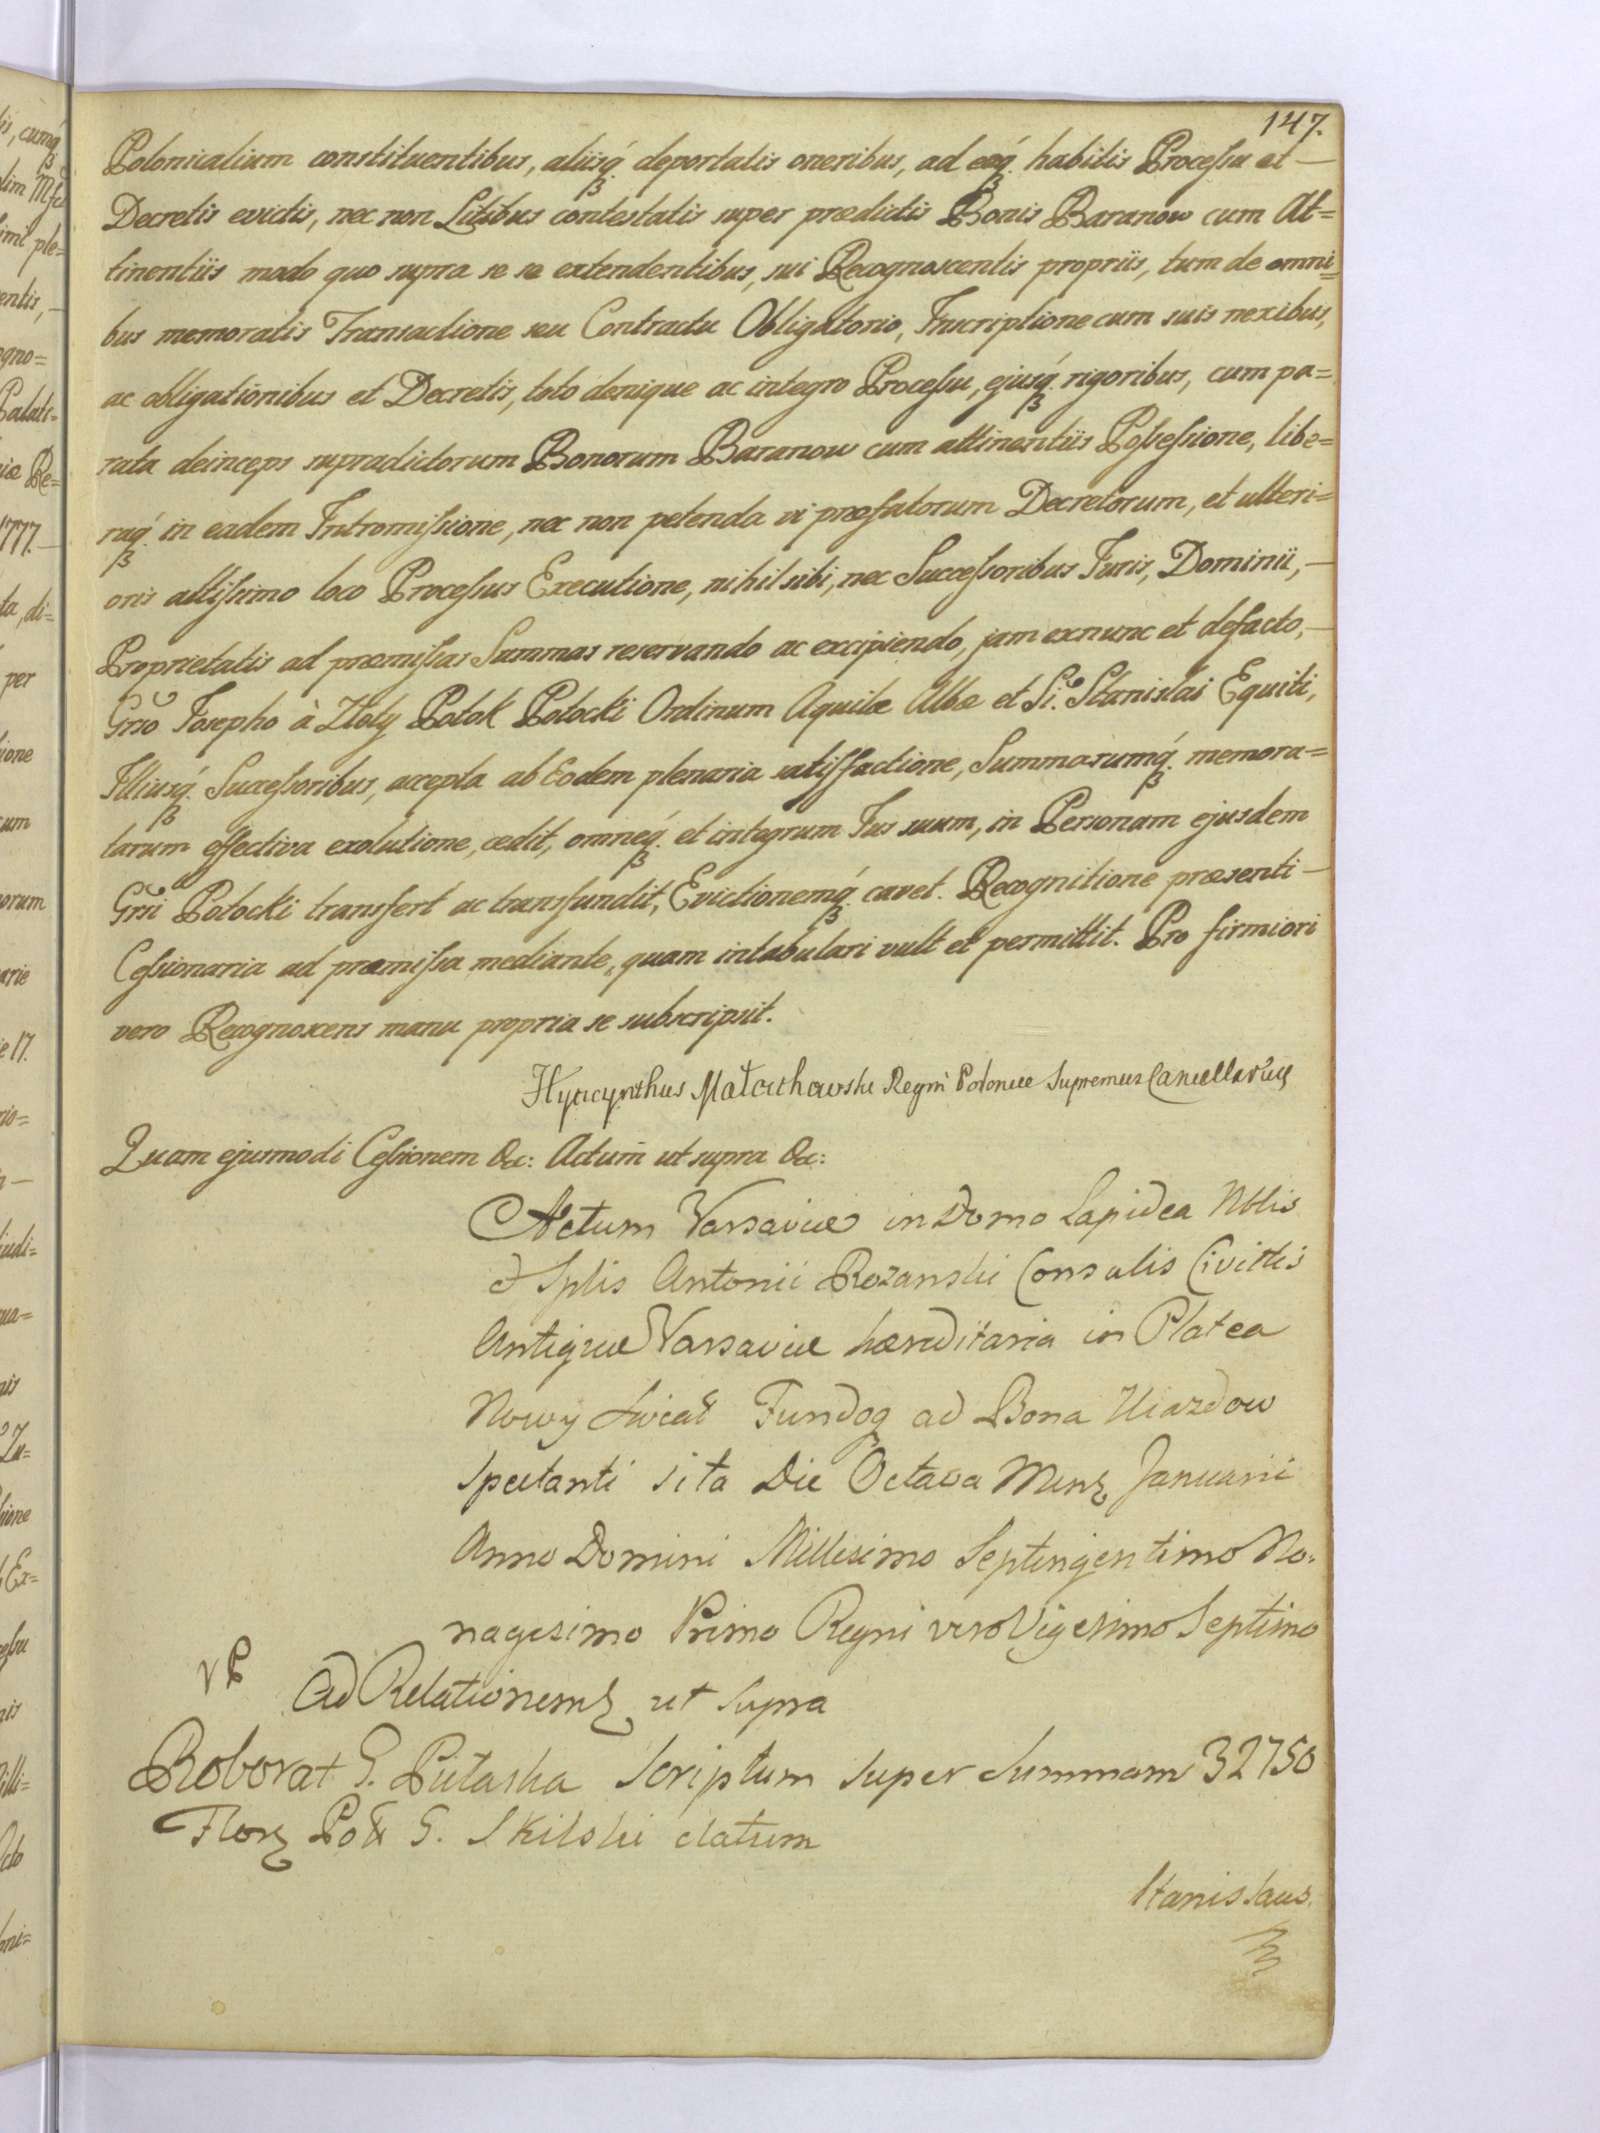 147.
Polonicalium constituentibus, aliisq́ꝫ deportatis oneribus, ad eaq́ꝫ habitis Processu et —
Decretis evictis, nec non Litibus contestatis super prædictis Bonis Baranow cum At=
tinentiis modo quo supra se se extendentibus, sui Recognoscentis propriis, tum de omni=
bus memoratis Transactione seu Contractu Obligatorio, Inscriptione cum suis nexibus,
ac obligationibus et Decretis, toto denique ac integro Processu, ejusq́ꝫ rigoribus, cum pa=
rata deinceps supradictorum Bonorum Baranow cum attinentiis Possessione, libe=
raq́ꝫ in eadem Intromissione, nec non petenda vi præfatorum Decretorum, et ulteri=
oris altissimo loco Processus Executione, nihil sibi, nec Successoribus Juris, Dominii, —
Proprietatis ad præmissas Summas reservando ac excipiendo, jam exnunc et defacto, —
Grso Josepho à Złoty Potok Potocki Ordinum Aquilæ Albæ et Si. Stanislai Equiti,
Illiusq́ꝫ Successoribus, accepta ab Eodem plenaria satisfactione, Summarumq́ꝫ memora=
tarum effectiva exolutione, cedit, omneq́ꝫ et integrum Jus suum, in Personam ejusdem
Grsi Potocki transfert ac transfundit, Evictionemq́ꝫ cavet. Recognitione præsenti —
Cessionaria ad præmissa mediante, quam intabulari vult et permittit. Pro firmiori
vero Recognoscens manu propria se subscripsit.
Hyacynthus Małachowski Regni Poloniæ Supremus Cancellarius
Quam ejusmodi Cessionem &c: Actum ut supra &c:
Actum Varsaviæ in Domo Lapidea Nblis
et Splis Antonii Rozanski Consulis Civittis
Antiquæ Varsaviæ hæreditaria in Platea
Nowy Swiat Fundoq ad Bona Uiazdow
Spectanti sita Die Octava Mensꝫ Januarii
Anno Domini Millesimo Septingentimo No=
nagesimo Primo Regni vero Vigesimo Septimo
VP
Ad Relationemꝫ ut supra
Roborat G. Scriptum super Summam 32750
Florꝫ Pol G. Skilski datum
Stanislaus.